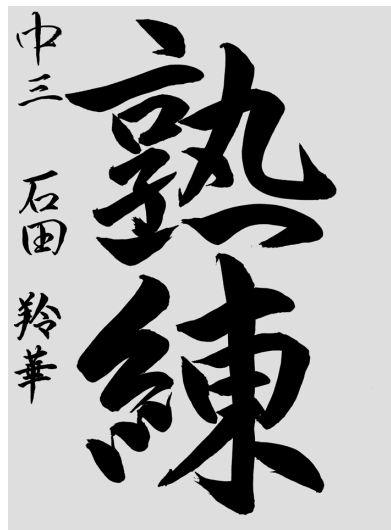 熟練
中三 石田 羚華